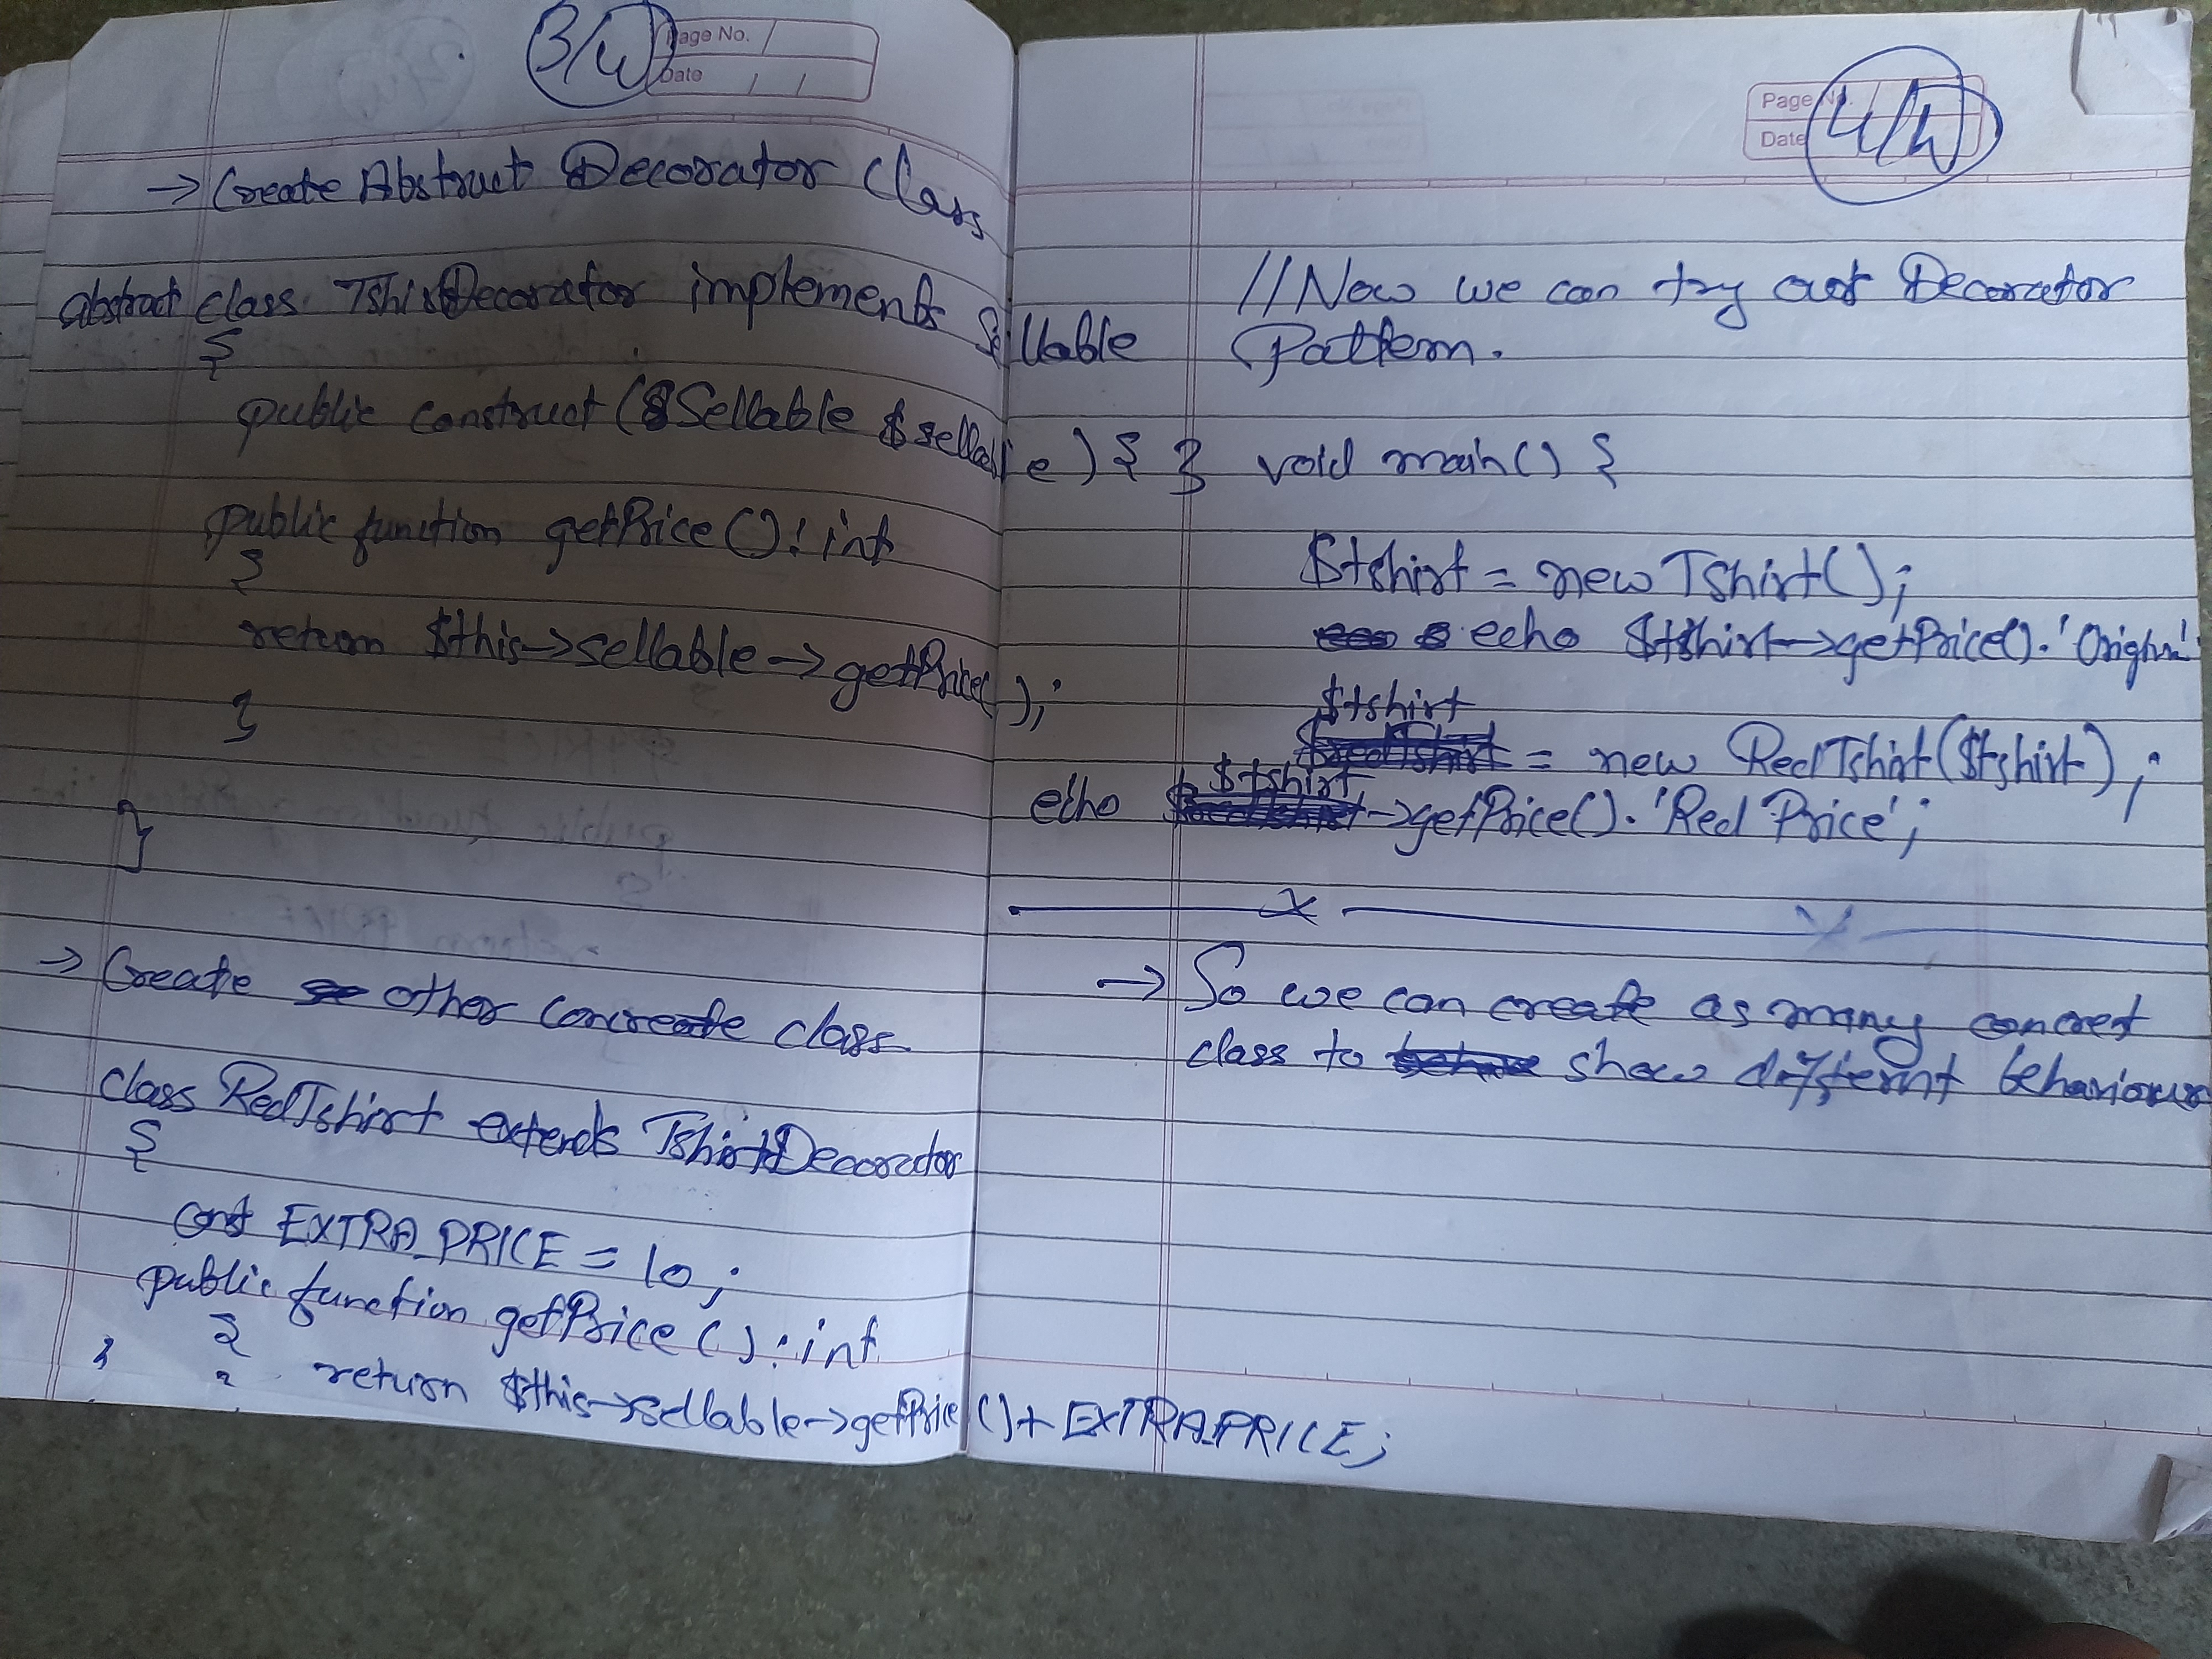 3/4
Page No.
Date / /
→ Create Abstract Decorator Class
abstract class TshirtDecorator implements Sellable
{
public construct (Sellable $sellable) { }
public function getPrice() : int
{
return $this->sellable->getPrice();
}
}
→ Create other concrete class
class RedTshirt extends TshirtDecorator
{
const EXTRA_PRICE = 10;
public function getPrice() : int
{
return $this->sellable->getPrice() + EXTRA_PRICE;
}
4/4
Page No.
Date
//Now we can try out Decorator
Pattern.
void main() {
$tshirt = new Tshirt();
echo $tshirt->getPrice().'Origin'
$tshirt = new RedTshirt($tshirt);
echo $tshirt->getPrice().'Red Price';
x
→ So we can create as many concret
class to show different behaviour